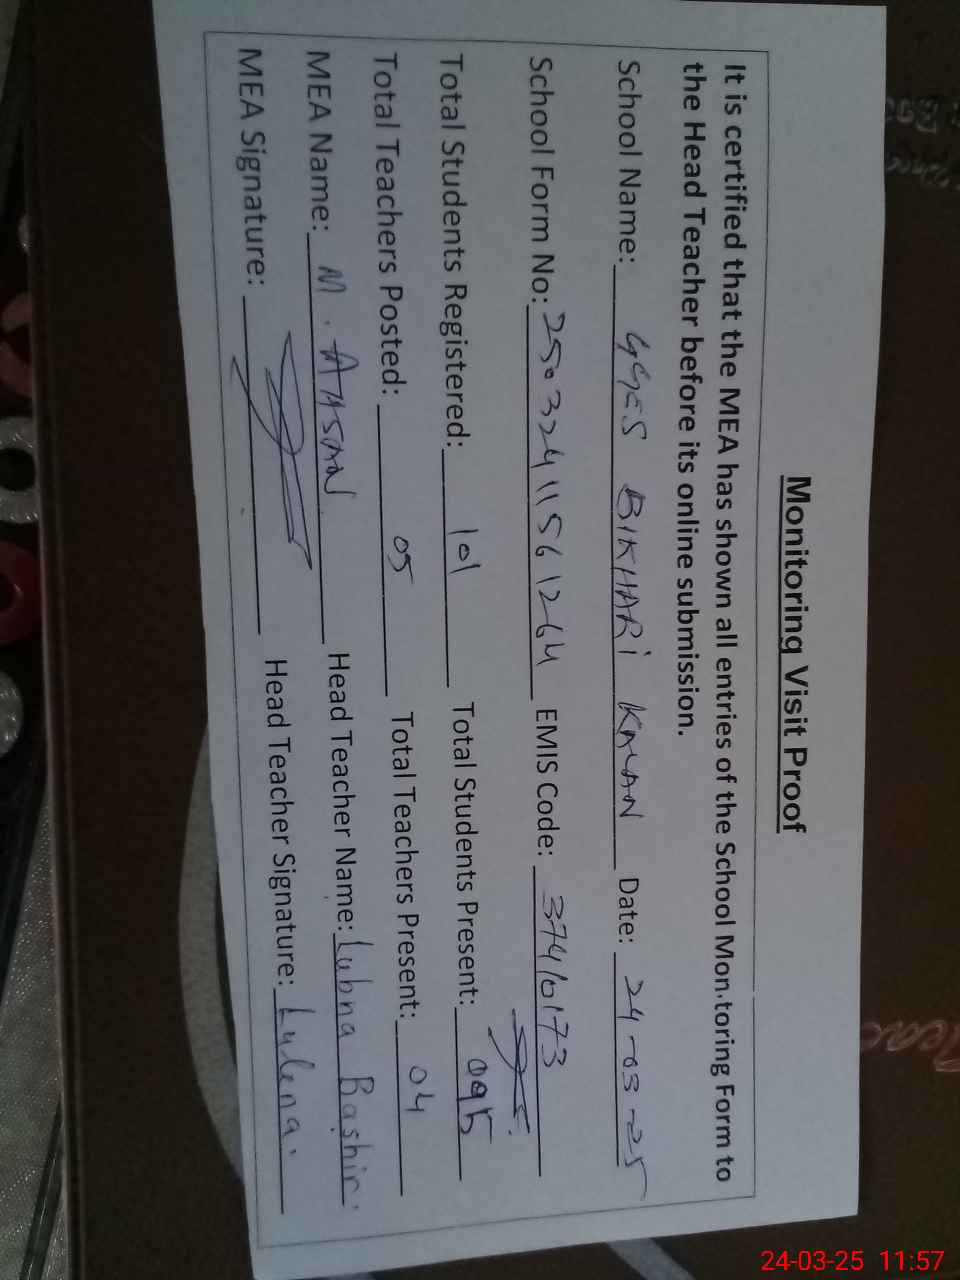 Monitoring Visit Proof
It is certified that the MEA has shown all entries of the School Mon.toring Form to
the Head Teacher before its online submission.
School Name: GGES BIKHARI KALAN Date: 24-03-25
School Form No: 25032411561264 EMIS Code: 37410173
Total Students Registered: 101 Total Students Present: 095
Total Teachers Posted: 05 Total Teachers Present: 04
MEA Name: M. AHSAN Head Teacher Name: Lubna Bashir.
MEA Signature: Head Teacher Signature:
24-03-25 11:57